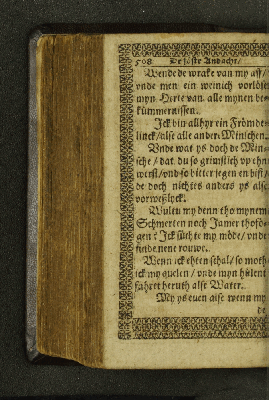 508 De soste Andacht/
Wende de wrake van my aff/
vnde men ein weinich vorlöse
myn Herte van alle mynen be-
kümmernissen.
Jck bin allhyr ein Frömde-
linck/alse alle andere Minschen.
Vnde wat ys doch de Min-
sche/dat du so grimstich vp ehn
werst/vnd so bitter jegen en bist/
de doch nichtes anders ys alse
vorweßlyck.
Wultu my denn tho mynem
Schmerten noch Jamer thofö-
gen? Jck süchte my möde/vnde
finde nene rouwe.
Wenn ick ehten schal/so moth
ick my quelen/vnde myn hülent
fahret heruth alse Water.
My ys euen alse wenn my
de